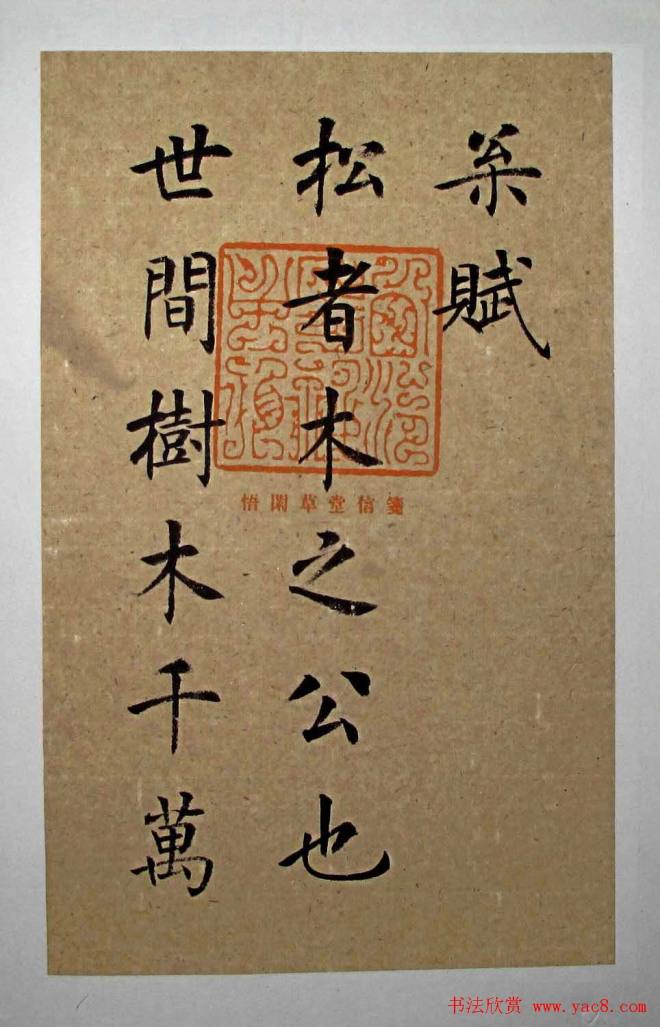 枀賦
松者木之公也
世間樹木千萬
悟閑草堂信箋
书法欣赏 www.yac8.com